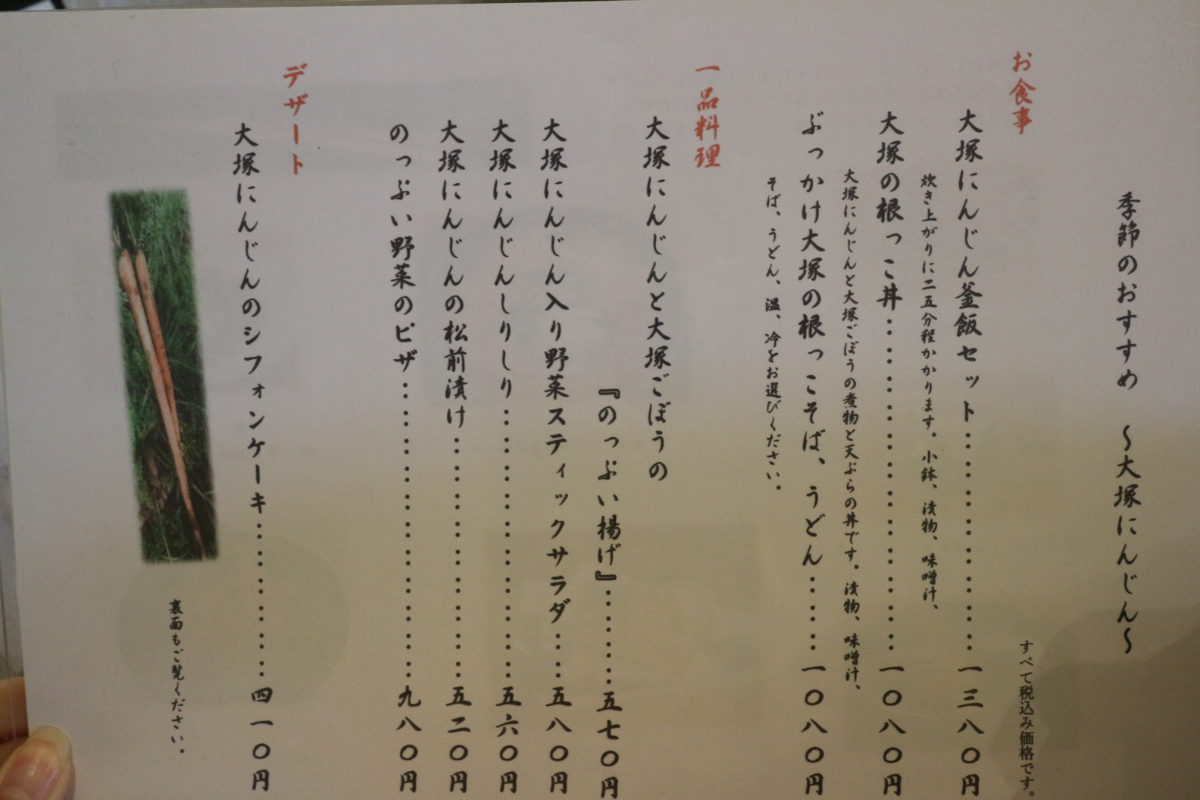 季節のおすすめ ～大塚にんじん～
すべて税込み価格です。
お食事
大塚にんじん釜飯セット……………………一三八〇円
炊き上がりに二五分程かかります。小鉢、漬物、味噌汁、
大塚の根っこ丼……………………一〇八〇円
大塚にんじんと大塚ごぼうの煮物と天ぷらの丼です。漬物、味噌汁、
ぶっかけ大塚の根っこそば、うどん………一〇八〇円
そば、うどん、温、冷をお選びください。
一品料理
大塚にんじんと大塚ごぼうの
『のっぷい揚げ』…………五七〇円
大塚にんじん入り野菜スティックサラダ……五八〇円
大塚にんじんしりしり……………………五六〇円
大塚にんじんの松前漬け…………………五二〇円
のっぷい野菜のピザ……………………九八〇円
デザート
大塚にんじんのシフォンケーキ……………四一〇円
裏面もご覧ください。